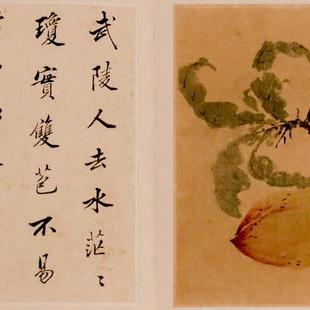 武陵人去水茫〻
瓊實雙苞不易